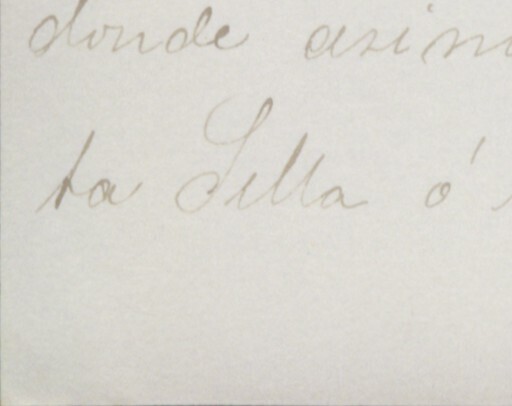 donde asim
ta Silla ó